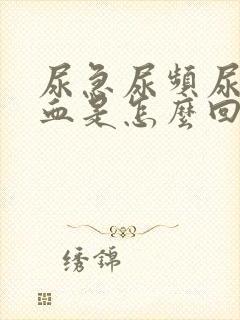 尿急尿頻尿
血是怎麼回
绣錦